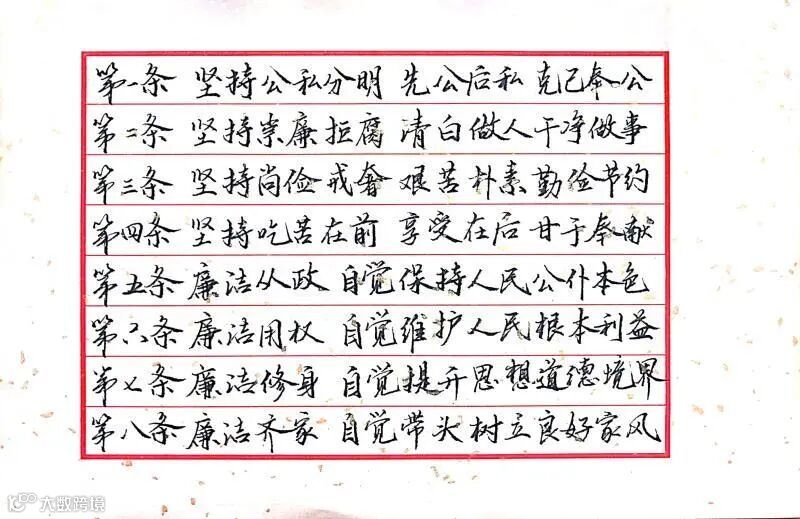 第一条 坚持公私分明 先公后私 克己奉公
第二条 坚持崇廉拒腐 清白做人 干净做事
第三条 坚持尚俭戒奢 艰苦朴素 勤俭节约
第四条 坚持吃苦在前 享受在后 甘于奉献
第五条 廉洁从政 自觉保持人民公仆本色
第六条 廉洁用权 自觉维护人民根本利益
第七条 廉洁修身 自觉提升思想道德境界
第八条 廉洁齐家 自觉带头树立良好家风
大数跨境